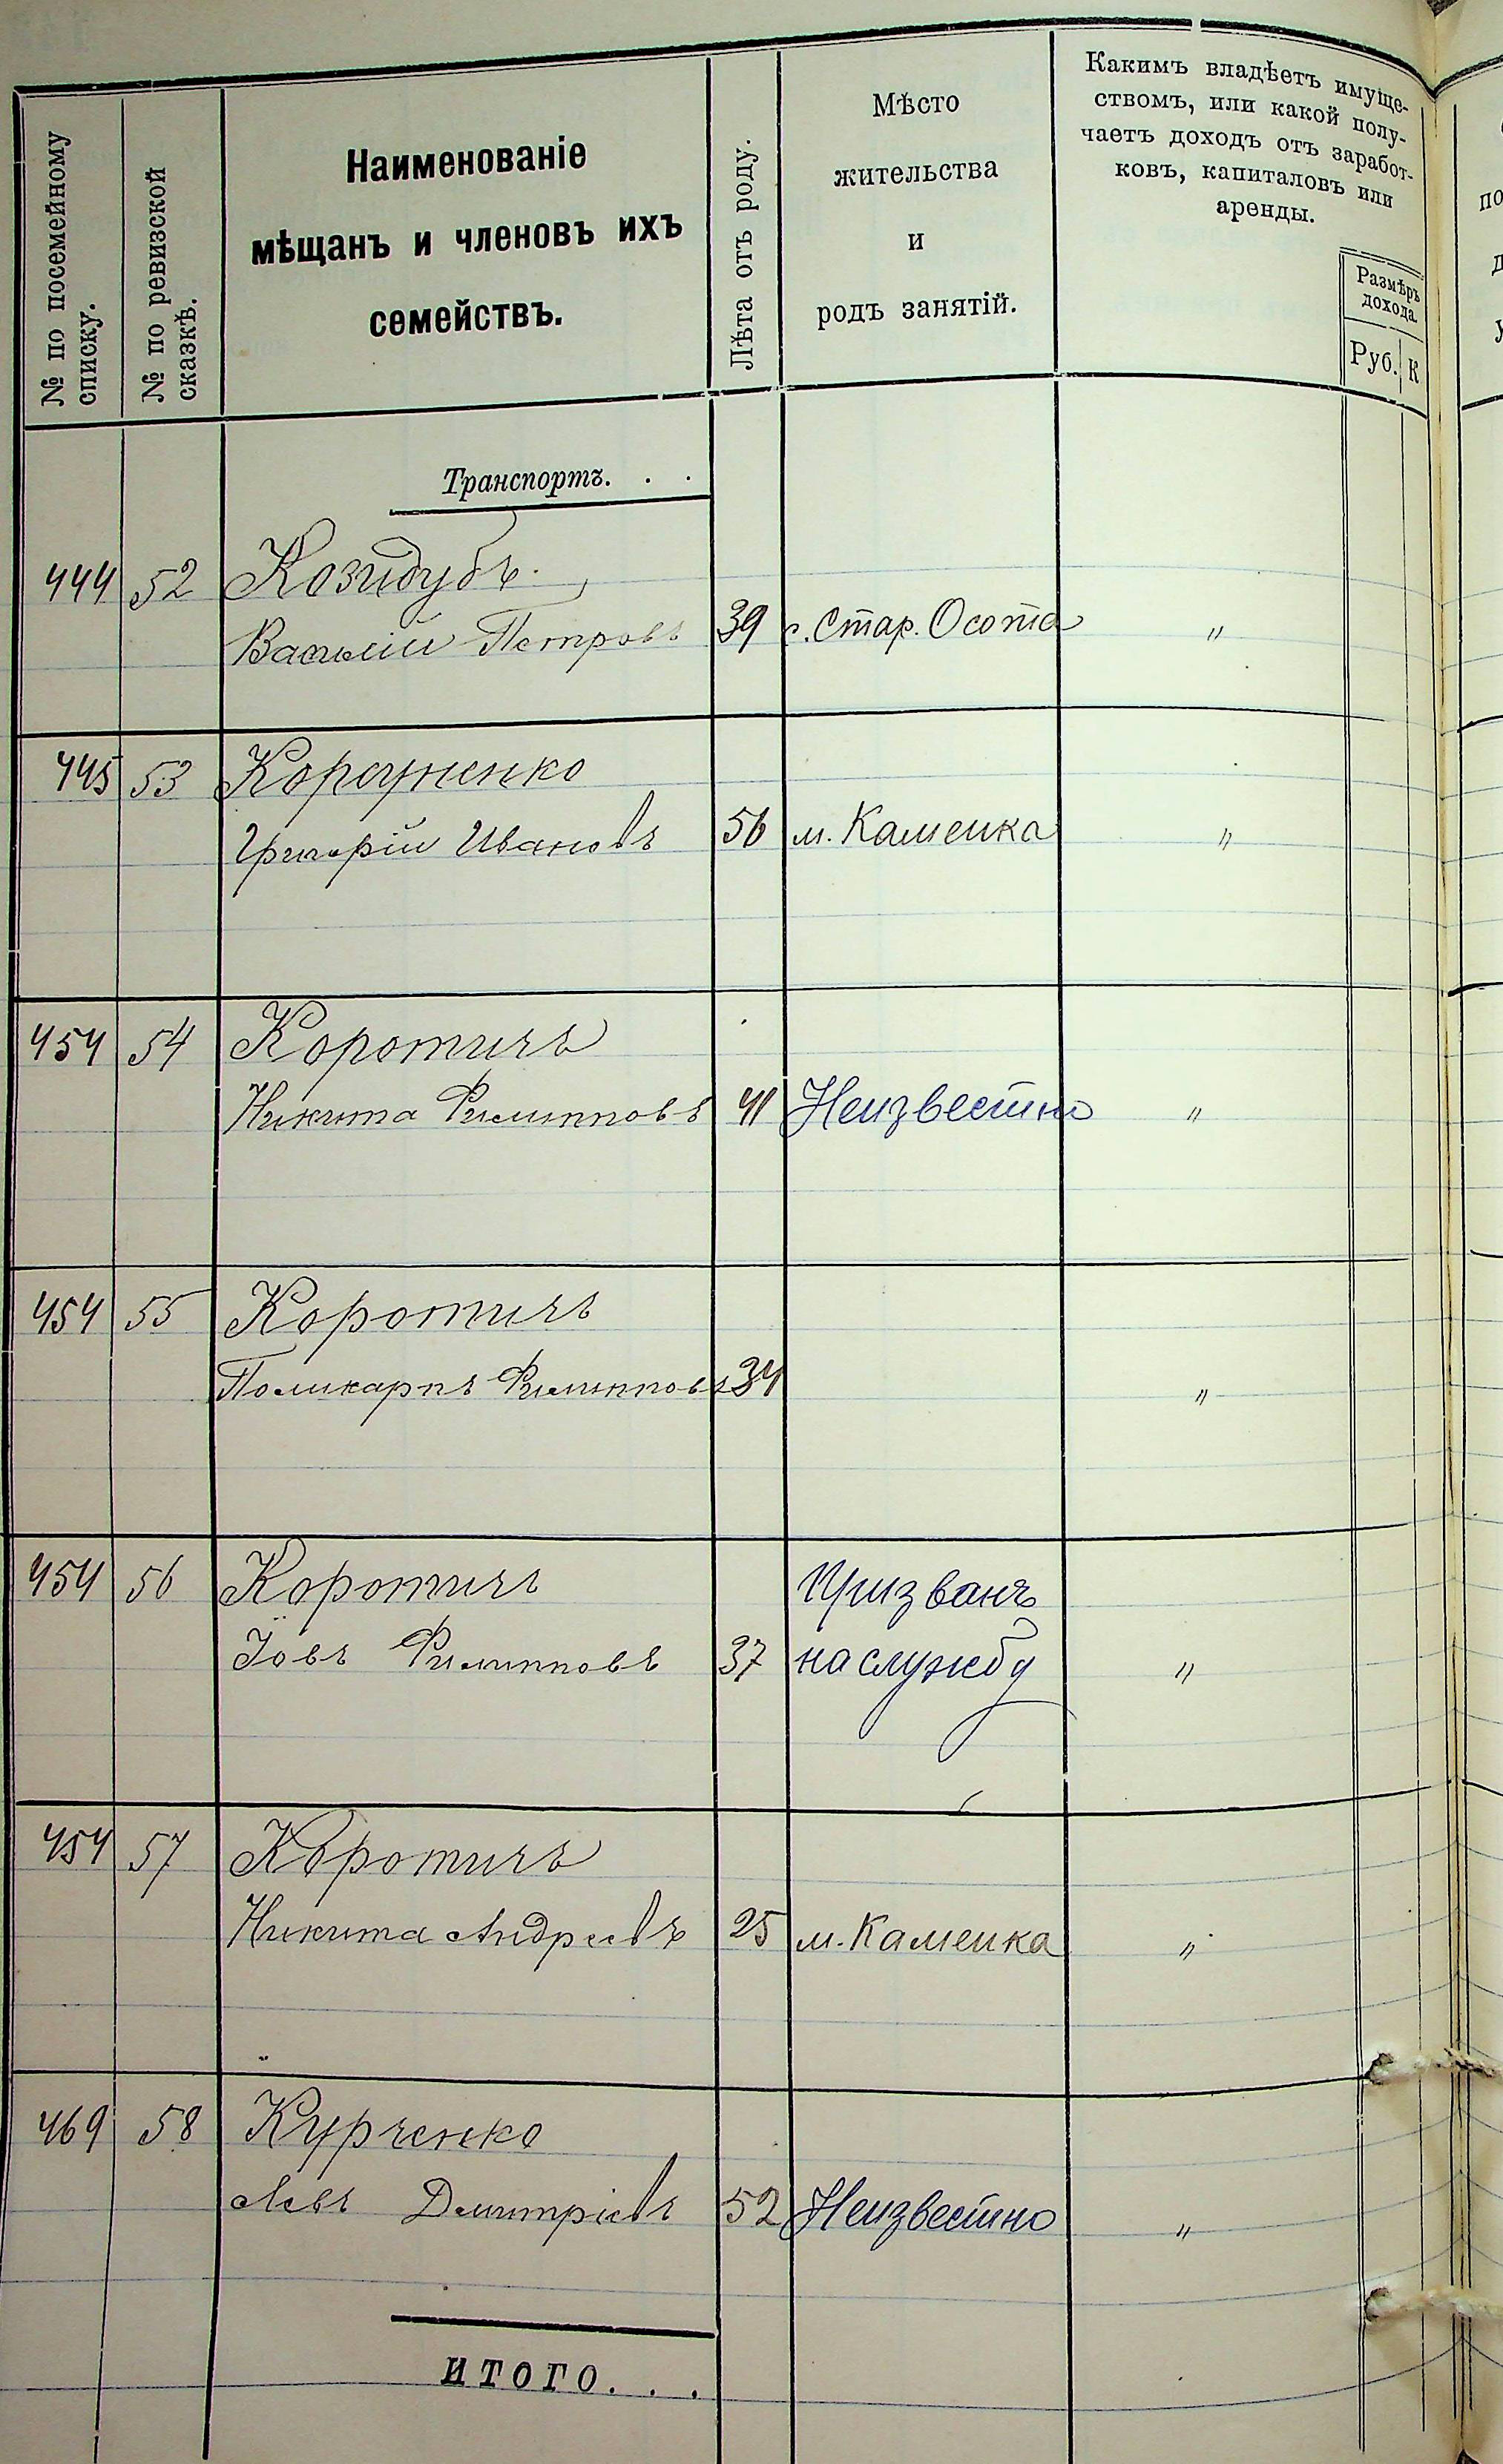 № по посемейному
списку.
№ по ревизской
сказкѣ.
Наименованіе
мѣщанъ и членовъ ихъ
семействъ.
Лѣта отъ роду.
Мѣсто
жительства
и
родъ занятій.
Какимъ владѣетъ имуще-
ствомъ, или какой полу-
чаетъ доходъ отъ заработ-
ковъ, капиталовъ или
аренды.
Размѣръ
дохода.
Руб. К
Транспортъ. . .
444 52 Козидубъ
Василій Петровъ 39 с. Стар. Осота "
445 53 Корсуненко
Григорій Ивановъ 56 м. Каменка "
454 54 Коротичъ
Никита Филипповъ 41 Неизвестно "
454 55 Коротичъ
Поликарпъ Филипповъ 34 "
454 56 Коротичъ Призванъ
Іовъ Филипповъ 37 на службу "
454 57 Коротичъ
Никита Андреевъ 25 м. Каменка "
469 58 Курченко
Левъ Дмитріевъ 52 Неизвестно "
ИТОГО. . .